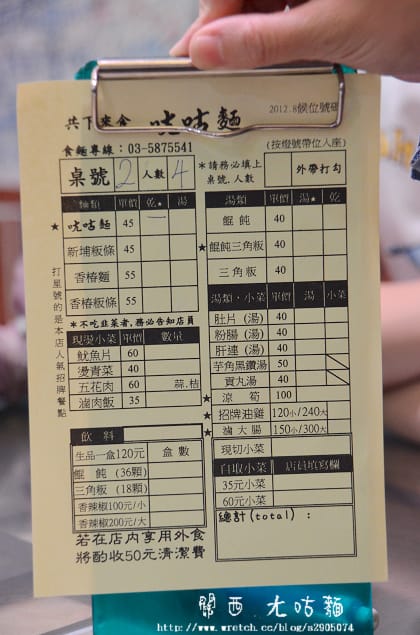 共下來食 咣咕麵 2012.8候位號碼
食麵專線：03-5875541 (按燈號帶位入座)
桌號 2 人數 4
*請務必填上桌號.人數 外帶打勾
麵類 單價 乾★ 湯
★ 咣咕麵 45 一
新埔粄條 45
香椿麵 55
香椿粄條 55
打星號的是本店人氣招牌餐點
*不吃韭菜者,務必告知店員
現燙小菜 單價 數量
魷魚片 60
燙青菜 40
五花肉 60 蒜.桔
滷肉飯 35
飲料
生品一盒120元 盒數
餛飩 (36顆)
三角粄 (18顆)
香辣椒100元/小
香辣椒200元/大
若在店內享用外食
將酌收50元清潔費
湯類 單價 湯★ 乾
餛飩 40
★ 餛飩三角粄 40
三角粄 40
湯類·小菜 單價 湯 小菜
肚片 (湯) 40
粉腸 (湯) 40
肝連 (湯) 40
芋角黑鑽湯 50
貢丸湯 40
★ 涼筍 100
★ 招牌油雞 120小/240大
★ 滷大腸 150小/300大
現切小菜
自取小菜 店員填寫欄
35元小菜
60元小菜
總計(total)：
關西 尤咕麵
http://www.wretch.cc/blog/a2905074